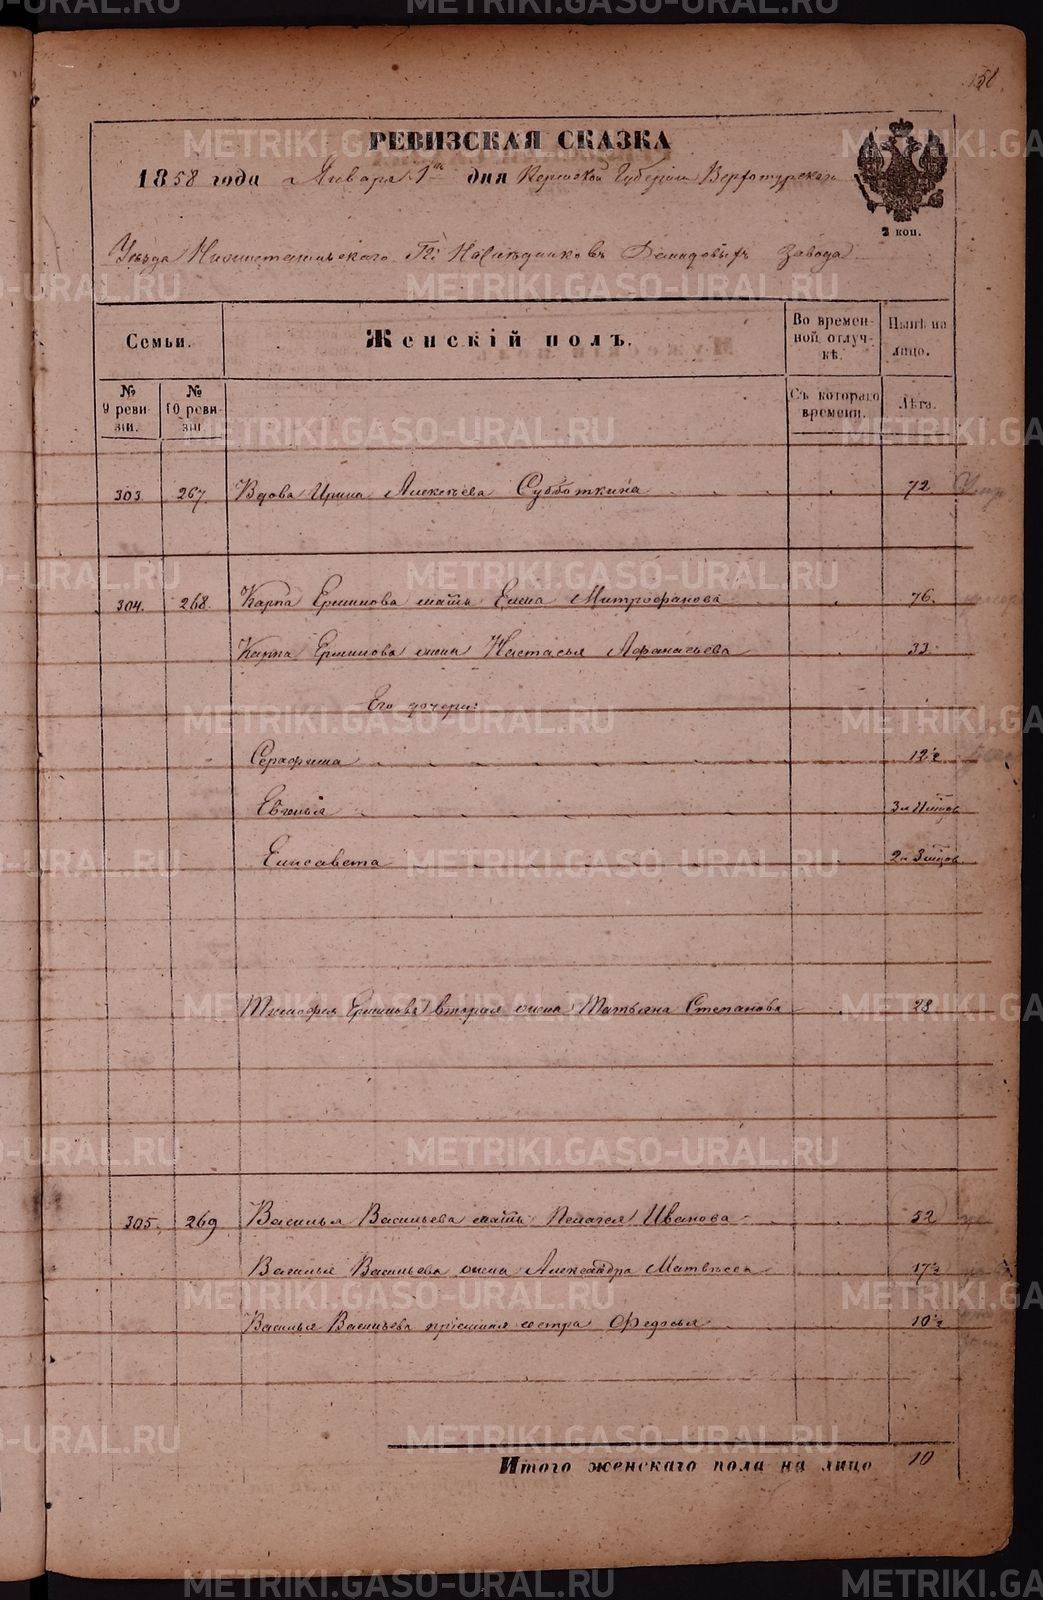 150.
РЕВИЗСКАЯ СКАЗКА
1858 года Января 1го дня Пермской Губернии Верхотурскаго
2 коп.
Уезда Нижнетагильскаго Гг: Наследниковъ Демидовыхъ Завода
Семьи.
Женскій полъ.
Во временной отлучкѣ.
Нынѣ на лицо.
№ 9 ревизіи.
№ 10 ревизіи.
Съ котораго времени.
Лѣта.
303. 267. Вдова Ирина Алексѣева Субботкина 72
304. 268. Карпа Ермилова мать Елена Митрофанова 76.
Карпа Ермилова жена Настасья Афанасьева 33.
Его дочери:
Серафима 12½
Евгенья 3 и 11 мцов
Елисавета 2 и 3 мцов
Тимофея Ермилова вторая жена Татьяна Степанова 28
305. 269 Василья Васильева мать Пелагея Иванова 52
Василья Васильева жена Александра Матвеева 17½
Василья Васильева сестра Федосья 10½
Итого женскаго пола на лицо 10
METRIKI.GASO-URAL.RU